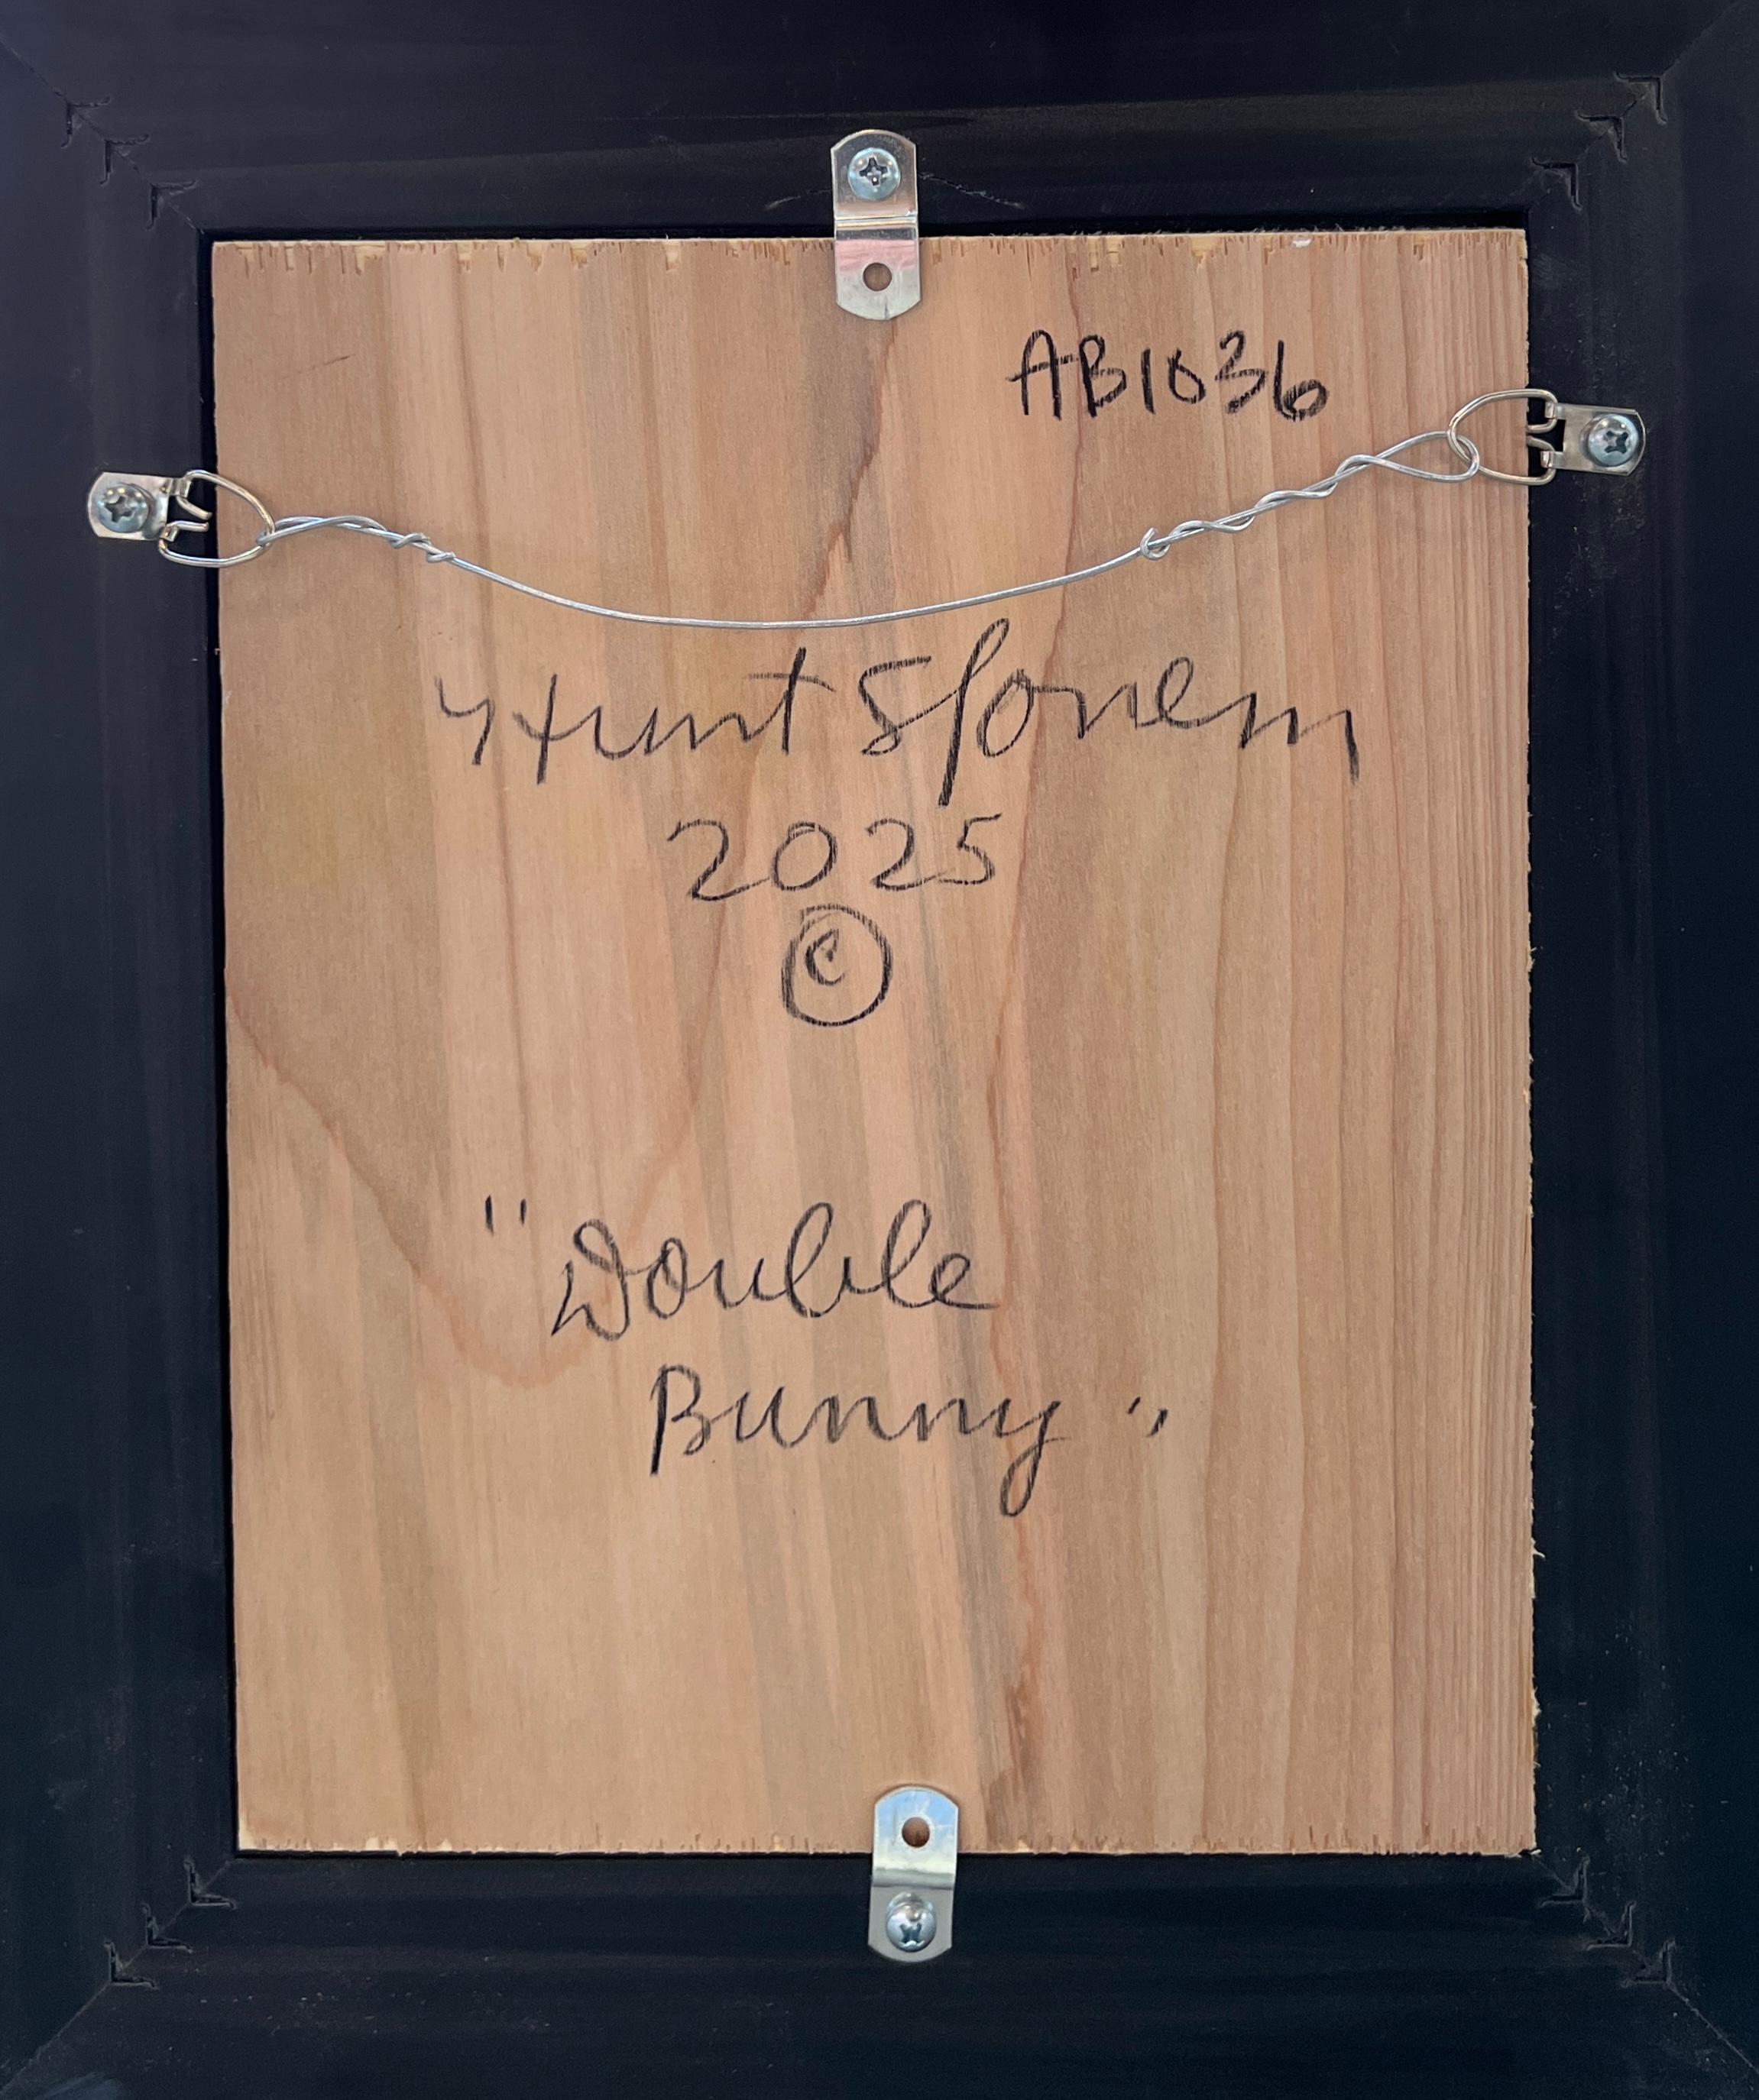 AB1036
Hunt Slonem
2025
©
"Double
Bunny"